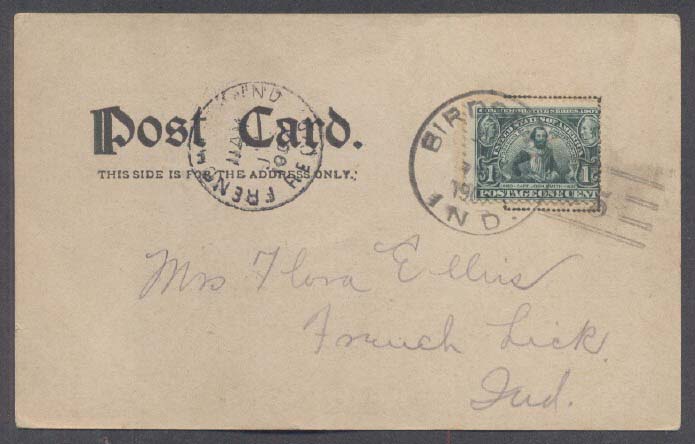 Post Card.
THIS SIDE IS FOR THE ADDRESS ONLY.
FRENCH
IND
BIRD
190
IND.
COMMEMORATIVE SERIES 1907
UNITED STATES OF AMERICA
1 1
POSTAGE ONE CENT
Mrs Flora Ellis
French Lick.
Ind.